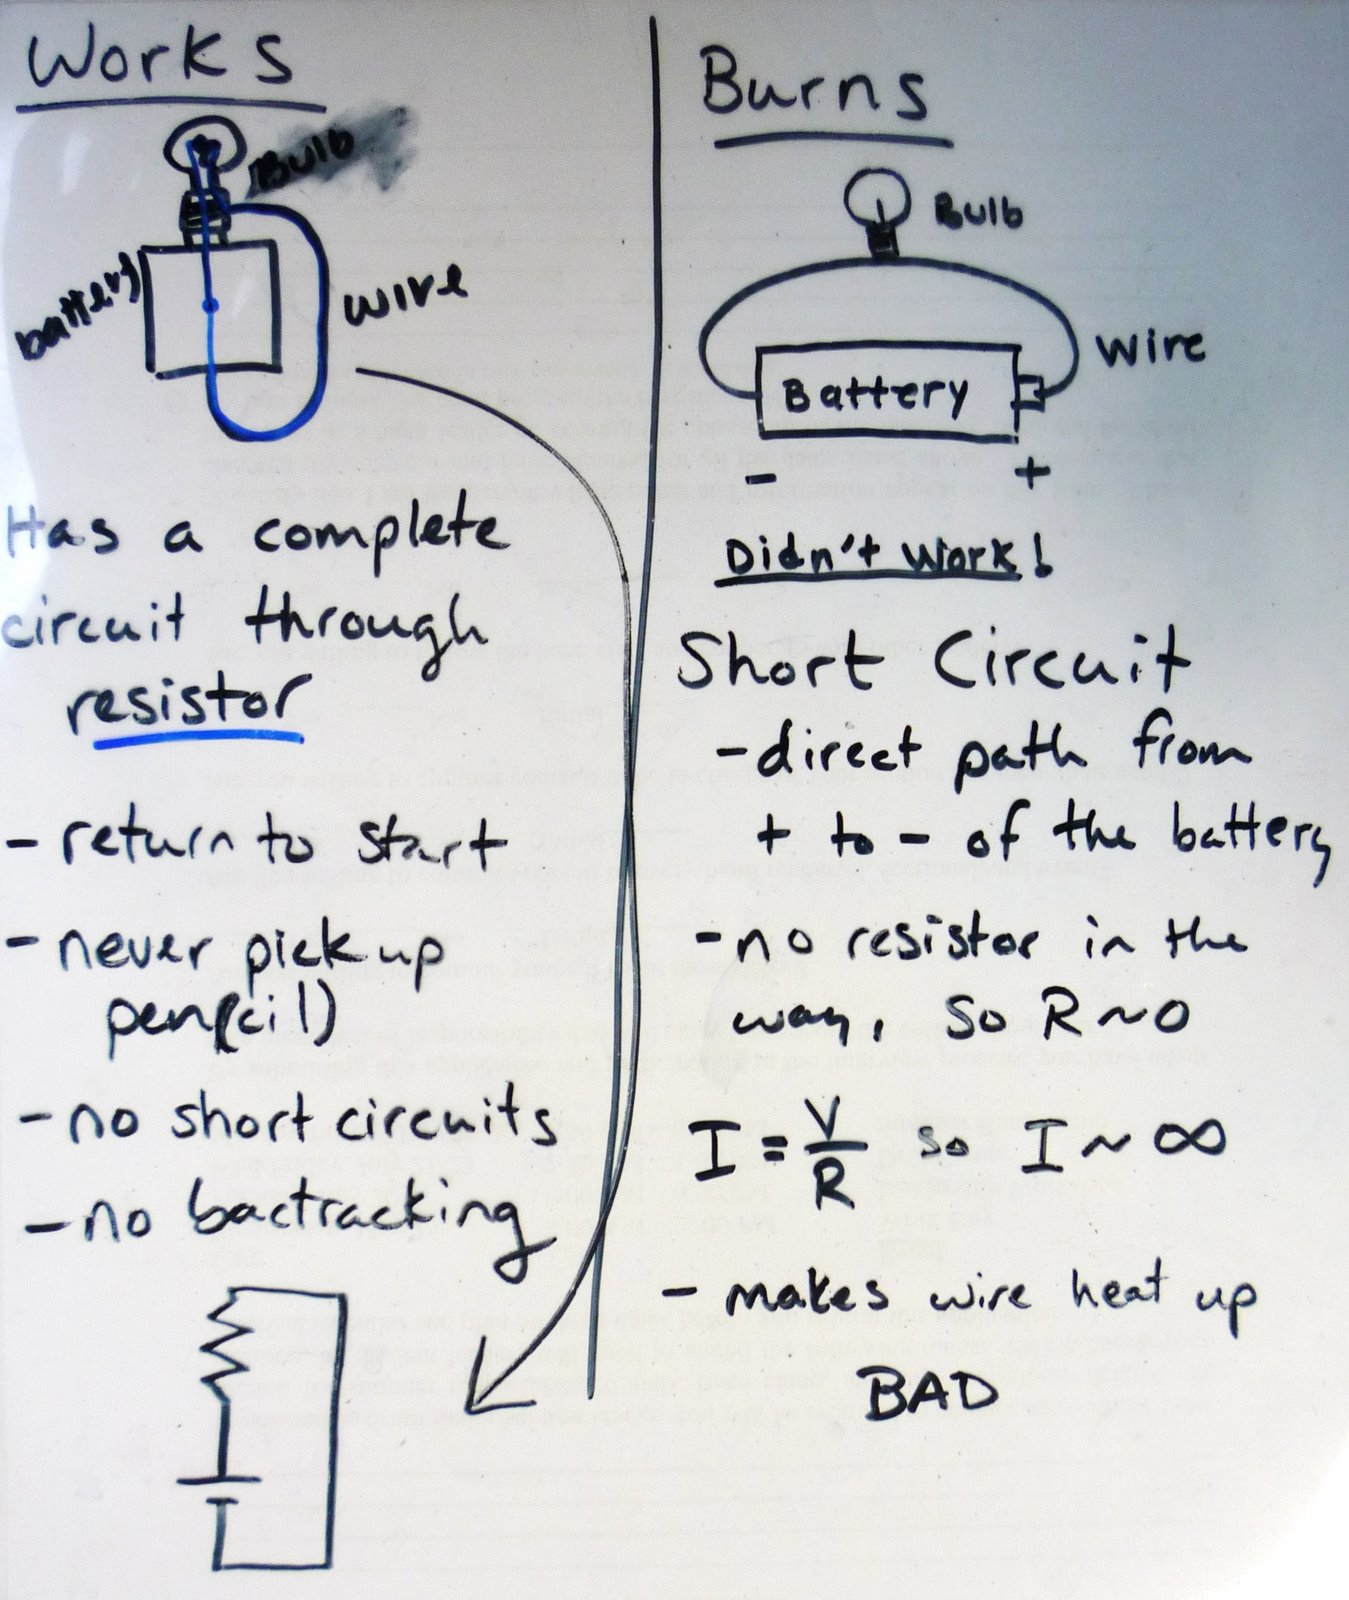 Works
Bulb
battery
wire
Has a complete
circuit through
resistor
- return to start
- never pick up
pen(cil)
- no short circuits
- no bactracking
Burns
Bulb
wire
Battery
- +
Didn't work!
Short Circuit
- direct path from
+ to - of the battery
- no resistor in the
way, so R ~ 0
I = V/R so I ~ ∞
- makes wire heat up
BAD